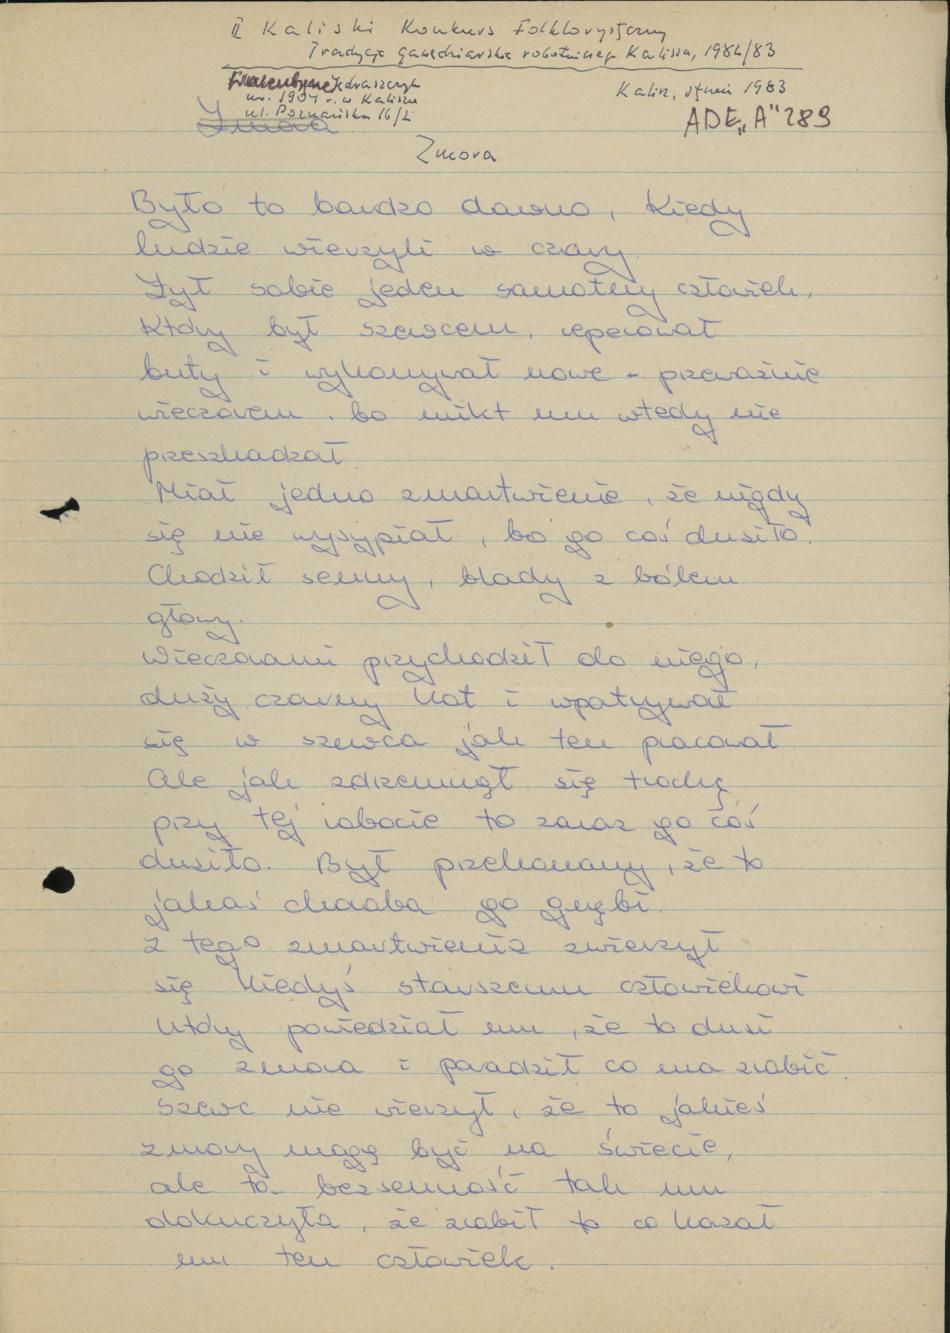 II Kaliski Konkurs Folklorystyczny
Tradycje gawędziarskie robotniczego Kalisza, 1982/83
Jędraszczyk
ur. 1904 r. w Kaliszu
ul. Poznańska 16/2
Kalisz, styczeń 1983
ADE „A" 289
Zmora
Zmora
Było to bardzo dawno, kiedy
ludzie wierzyli w czary.
Żył sobie jeden samotny człowiek,
który był szewcem, reperował
buty i wykonywał nowe - przeważnie
wieczorem, bo nikt mu wtedy nie
przeszkadzał.
Miał jedno zmartwienie, że nigdy
się nie wysypiał, bo go coś dusiło.
Chodził senny, blady z bólem
głowy.
Wieczorami przychodził do niego,
duży czarny kot i wpatrywał
się w szewca jak ten pracował
Ale jak zdrzemnął się trochę
przy tej robocie to zaraz go coś
dusiło. Był przekonany, że to
jakaś choroba go gnębi.
Z tego zmartwienia zwierzył
się kiedyś starszemu człowiekowi
który powiedział mu, że to dusi
go zmora i poradził co ma zrobić.
Szewc nie wierzył, że to jakieś
zmory mogą być na świecie,
ale ta bezsenność tak mu
dokuczyła, że zrobił to co kazał
mu ten człowiek.